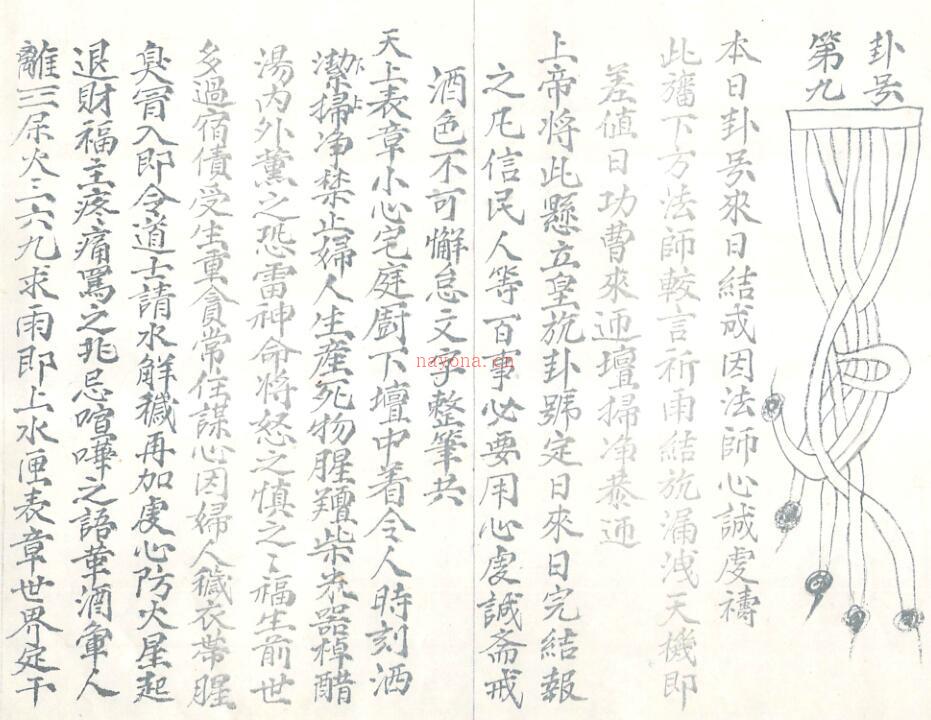 卦号
第九
本日卦号來日結成因法師心誠虔禱
此旛下方法師較言祈雨結旐漏洩天機即
差値日功曹來迊壇掃净恭迊
上帝将此懸立皇旐卦號定日來日完結報
之凢信民人等百事必要用心虔誠斎戒
酒色不可懈怠文字整筆共
天上表章小心宅庭廚下壇中着令人時刻洒
潔掃净禁止婦人生産死物腥羶柴米器棹醋
湯内外薰之恐雷神命将怒之慎之〻福生前世
多過宿債受生重貪常住謀心因婦人穢衣帶腥
臭胃入即令道士請水解穢再加虔心防火星起
退財福主疼痛罵之非忌喧嘩之語葷酒軰人
離三尿火二六九求雨即上水匣表章世界定干
nayona.cn